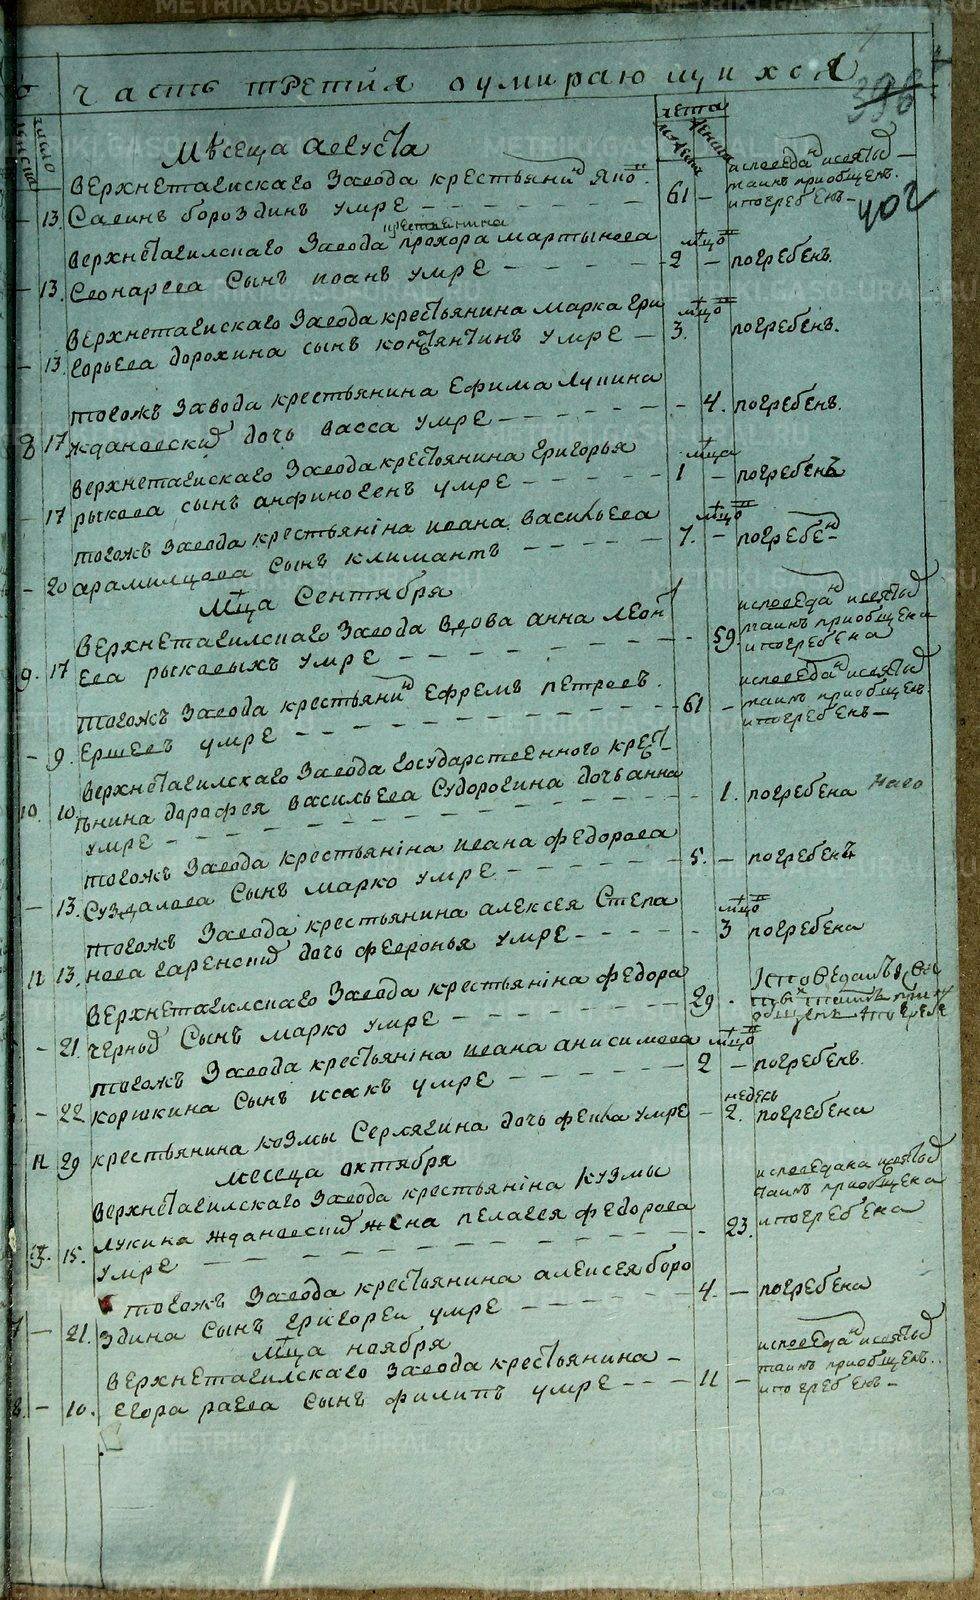 часть третия оумирающихся
396
402
число
лета
мужеска
женска
Мѣсеца Августа
верхнетагилскаго Завода крестьянинъ Яко
13. Савинъ бороздинъ умре 61 исповеданъ исвятыхъ таинъ приобщенъ. ипогребенъ
крестьянина
верхнетагилскаго Завода прохора мартынова
13. Сеонарева Сынъ иоанъ умре мцо 2 погребенъ.
верхнетагилскаго Завода крестьянина марка Гри
13. горьева дорохина сынъ констянтинъ умре мцо 3. погребенъ.
тогожъ Завода крестьянина Ефима Лупина
8 17 ждановский дочь васса умре 4. погребенъ.
верхнетагилскаго Завода крестьянина григорья
17 рыкова сынъ анфиногенъ умре мца 1 погребенъ
тогожъ Завода крестьяніна ивана васильева
20 арамилцова Сынъ климантъ мцо 7. погребенъ
Мца Сентября
верхнетагилскаго Завода вдова анна леон
9. 17 ева рыковыхъ умре 59. исповедана исвятыхъ таинъ приобщена ипогребена
тогожъ Завода крестьянинъ Ефремъ петровъ
9. Ершевъ умре 61 исповеданъ исвятыхъ таинъ приобщенъ. ипогребенъ
верхнетагилскаго Завода государственного крест
10. 10. ьнина дорофея васильева Судорогина дочь анна
умре 1. погребена
тогожъ Завода крестьяніна ивана федорова
13. Суздалова Сынъ марко умре 5. погребенъ
тогожъ Завода крестьянина алексея Степа
11 13. нова гаренский дочь февронья умре мцо 3 погребена
верхнетагилскаго Завода крестьяніна федора
21. черныхъ Сынъ марко умре 29
тогожъ Завода крестьяніна ивана анисимова
22 коршкина Сынъ исакъ умре мцо 2 погребенъ.
12 29 крестьянина козмы Сермягина дочь фекла умре недель 2. погребена
месеца октября
верхнетагилскаго Завода крестьяніна кузмы
15. лукина ждановский жена пелагея федорова
умре 23. исповедана исвятыхъ таинъ приобщена ипогребена
тогожъ Завода крестьянина алексея боро
21. здина Сынъ григорей умре 4. погребена
Мца ноября
верхнетагилскаго Завода крестьянина
10. егора раева Сынъ филипъ умре 11 исповеданъ исвятыхъ таинъ приобщенъ. ипогребенъ
METRIKI.GASO-URAL.RU